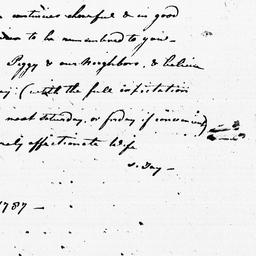 continues cheerful & in good
to be remembered to you—
Peggy & our Neighbors, & believe
(with the full expectation
next Saturday, or friday if convenient)
affectionate Wife
S. Jay—
1787—